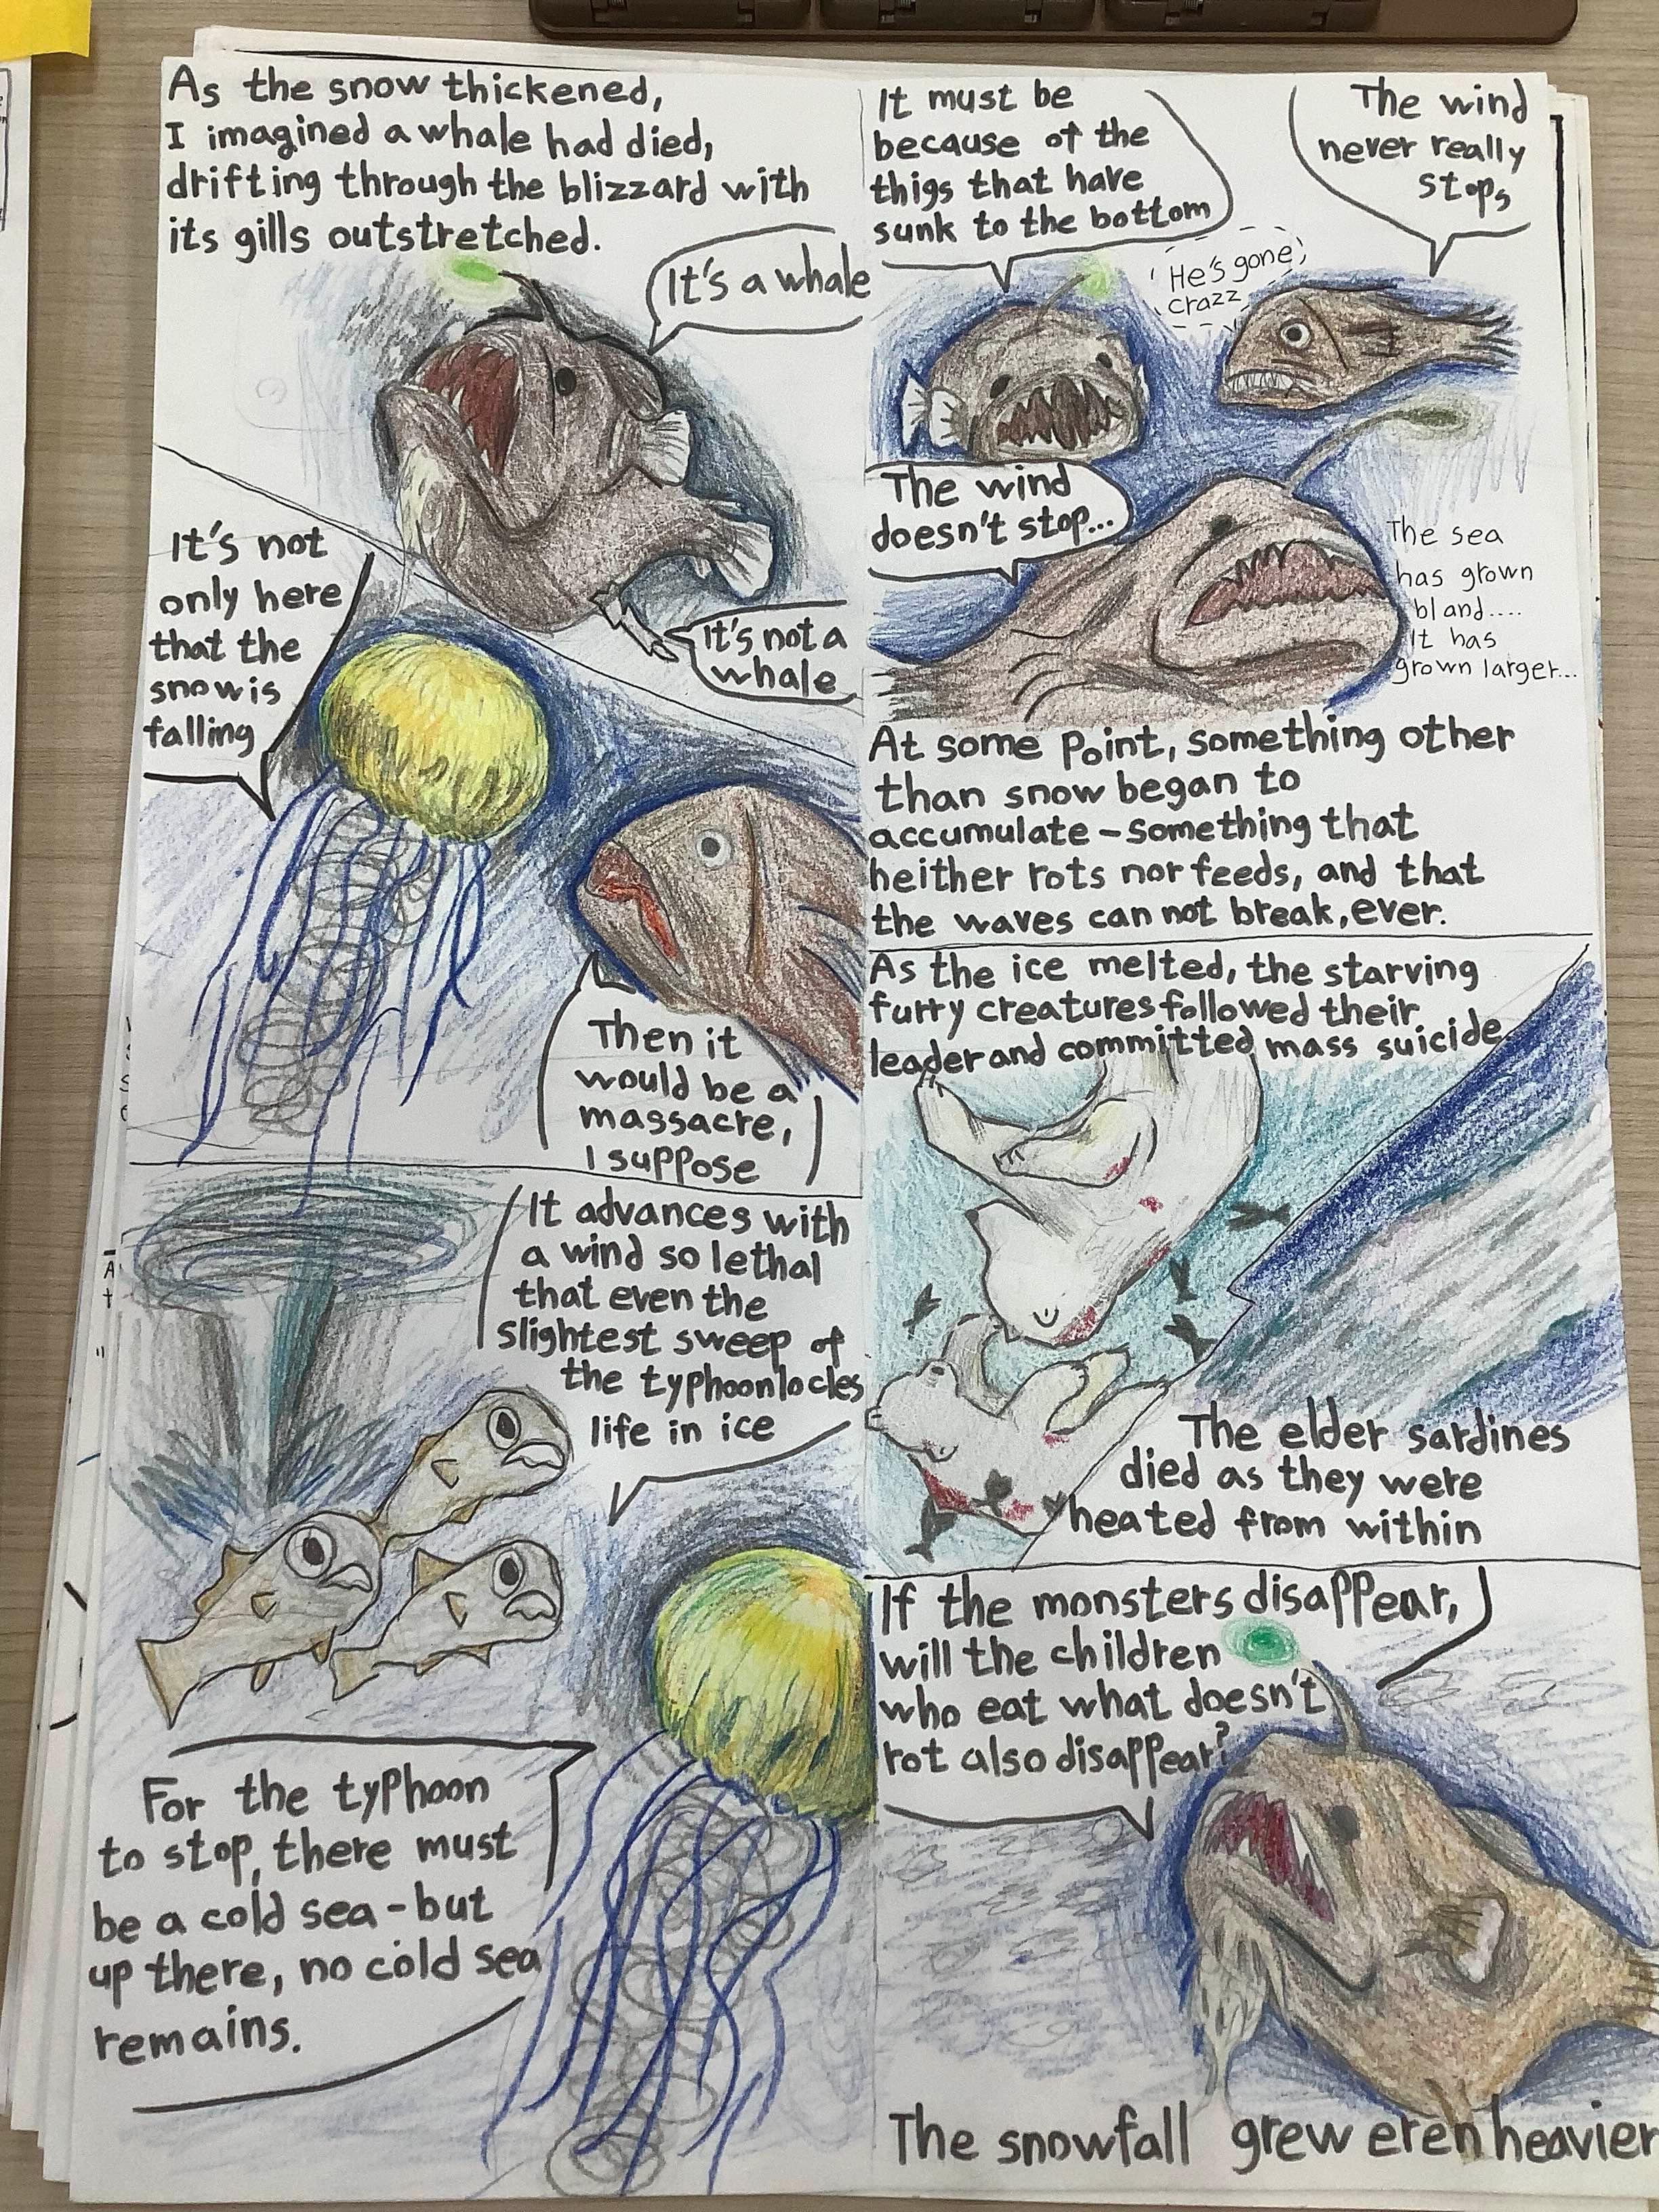 As the snow thickened,
I imagined a whale had died,
drifting through the blizzard with
its gills outstretched.
It's a whale
It's not a
whale
It's not
only here
that the
snow is
falling
Then it
would be a
massacre,
I suppose
It advances with
a wind so lethal
that even the
slightest sweep of
the typhoon locles
life in ice
For the typhoon
to stop, there must
be a cold sea - but
up there, no cold sea
remains.
It must be
because of the
thigs that have
sunk to the bottom
The wind
never really
stops
He's gone
crazz
The wind
doesn't stop...
The sea
has grown
bland....
It has
grown larger...
At some point, something other
than snow began to
accumulate - something that
heither rots nor feeds, and that
the waves can not break, ever.
As the ice melted, the starving
furry creatures followed their
leader and committed mass suicide
The elder sardines
died as they were
heated from within
If the monsters disappear,
will the children
who eat what doesn't
rot also disappear?
The snowfall grew eren heavier